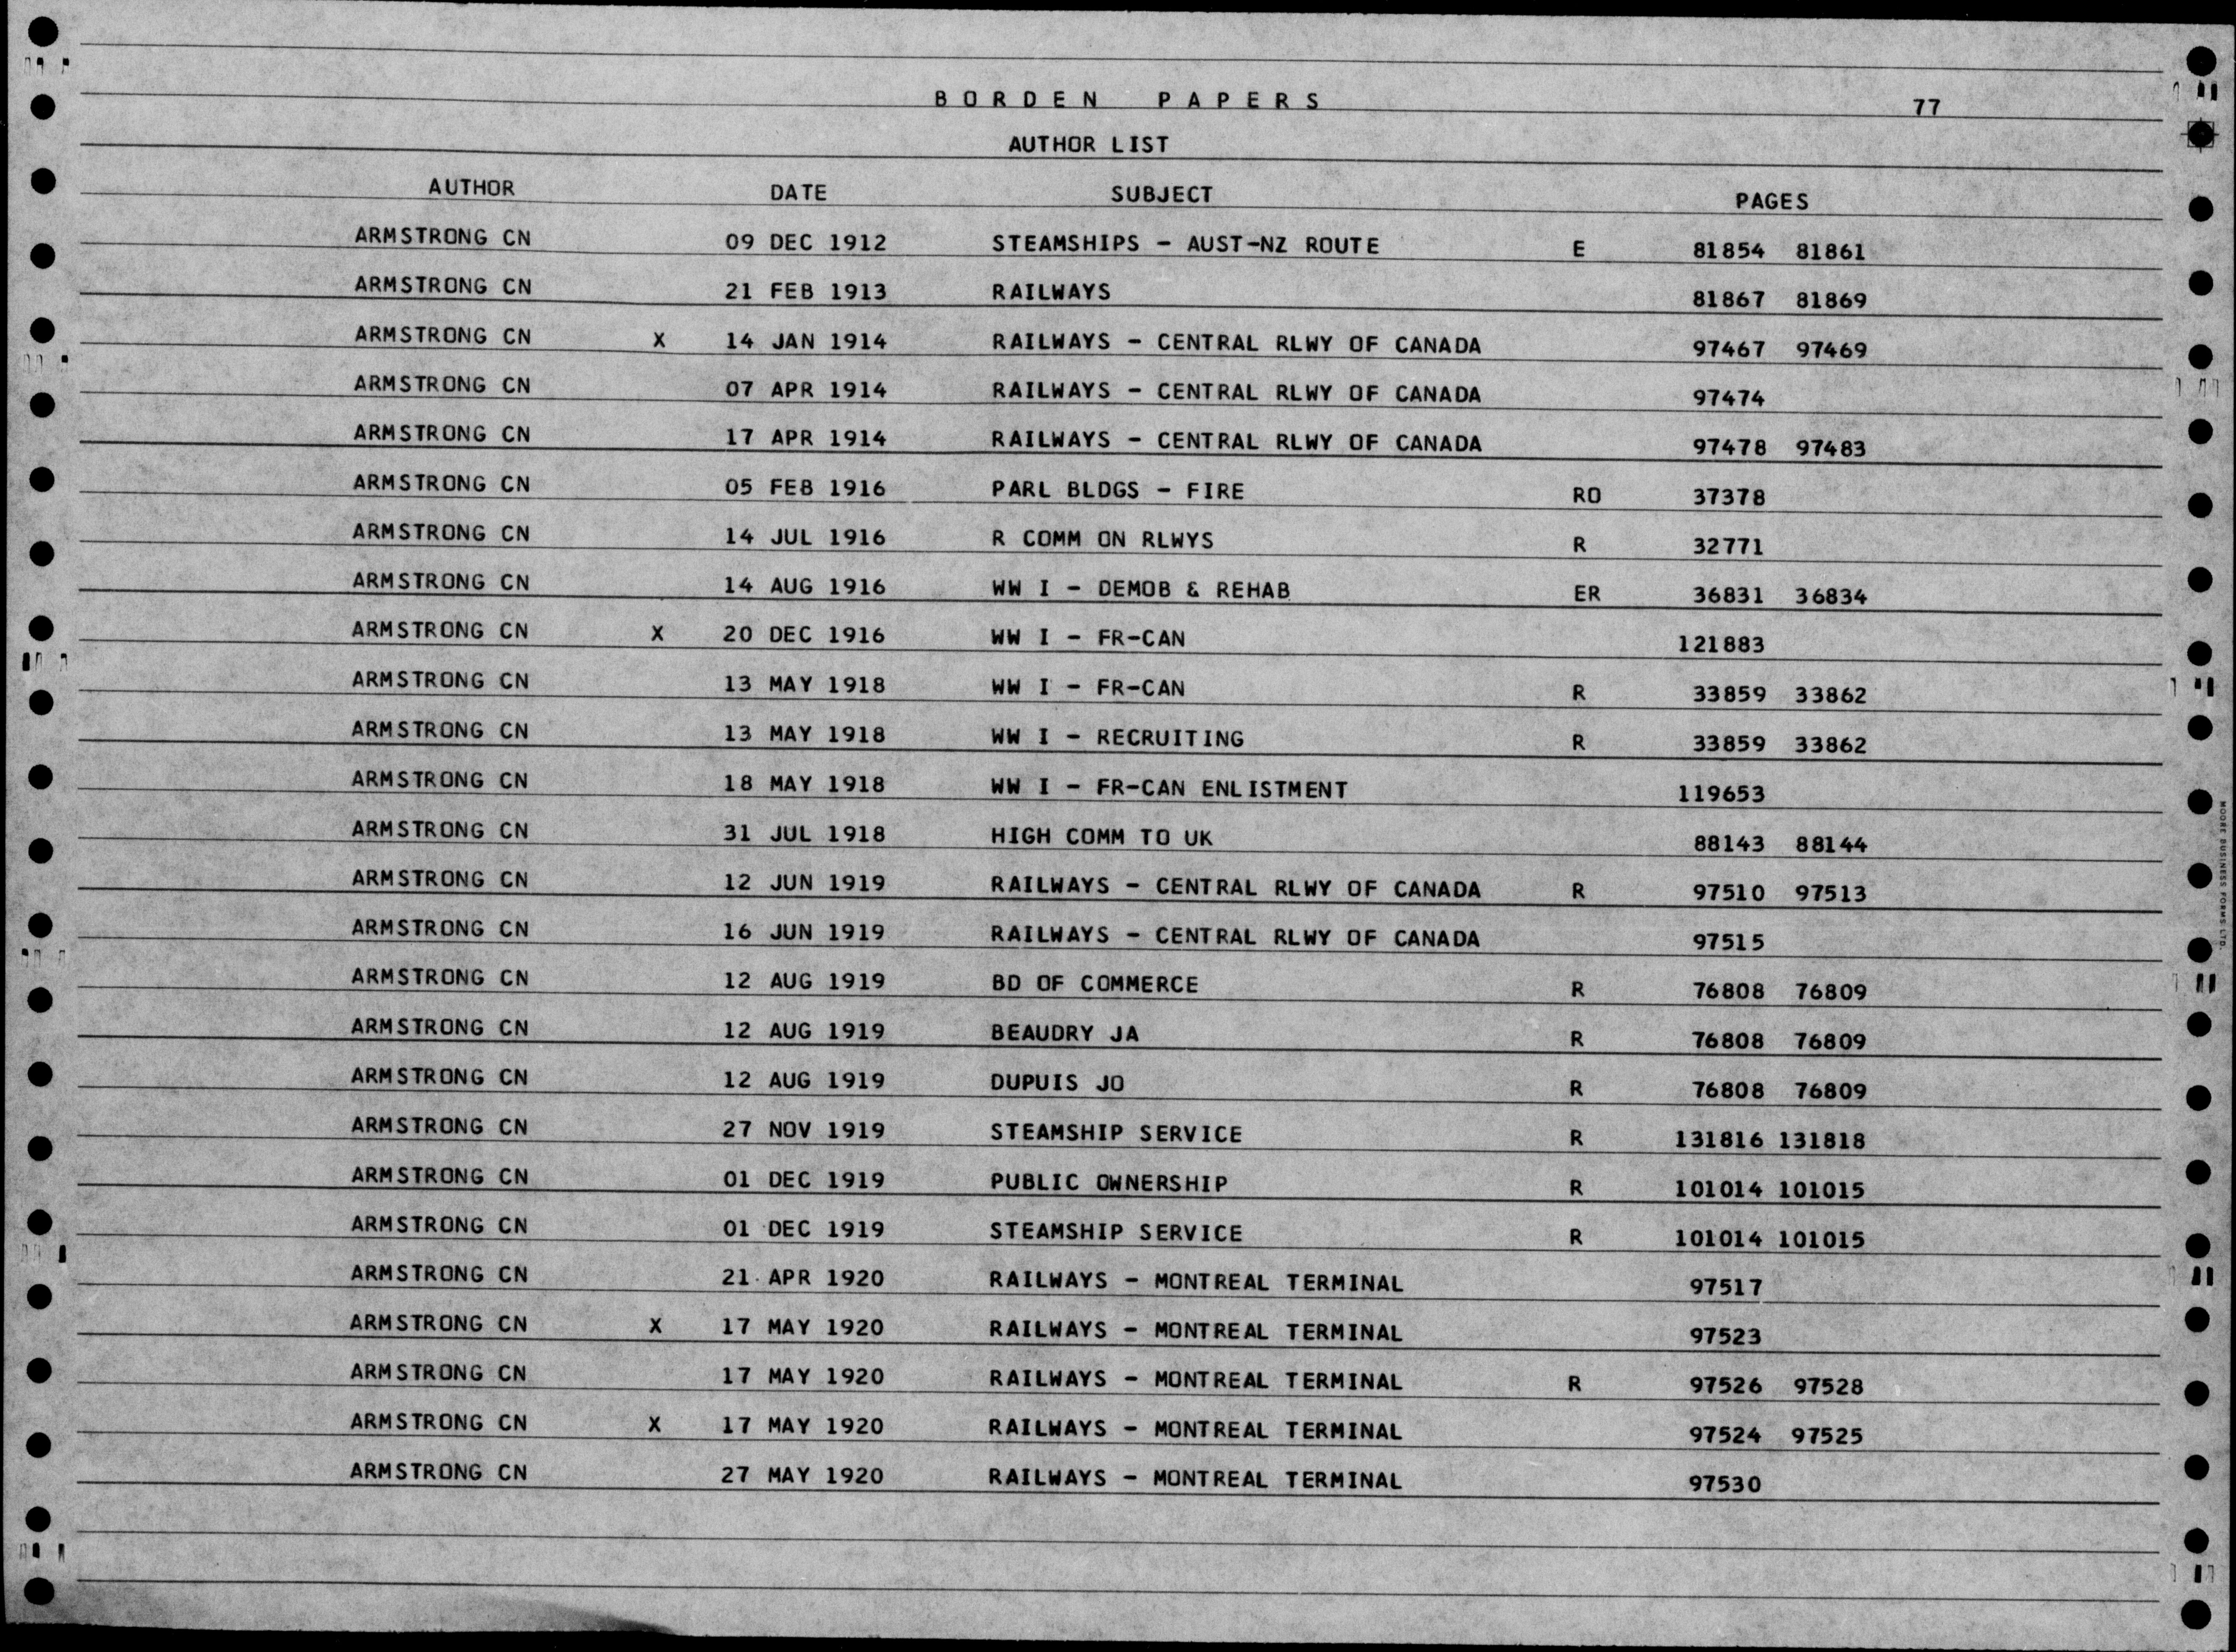 BORDEN PAPERS 77
AUTHOR LIST
AUTHOR DATE SUBJECT PAGES
ARMSTRONG CN 09 DEC 1912 STEAMSHIPS - AUST-NZ ROUTE E 81854 81861
ARMSTRONG CN 21 FEB 1913 RAILWAYS 81867 81869
ARMSTRONG CN X 14 JAN 1914 RAILWAYS - CENTRAL RLWY OF CANADA 97467 97469
ARMSTRONG CN 07 APR 1914 RAILWAYS - CENTRAL RLWY OF CANADA 97474
ARMSTRONG CN 17 APR 1914 RAILWAYS - CENTRAL RLWY OF CANADA 97478 97483
ARMSTRONG CN 05 FEB 1916 PARL BLDGS - FIRE RO 37378
ARMSTRONG CN 14 JUL 1916 R COMM ON RLWYS R 32771
ARMSTRONG CN 14 AUG 1916 WW I - DEMOB & REHAB ER 36831 36834
ARMSTRONG CN X 20 DEC 1916 WW I - FR-CAN 121883
ARMSTRONG CN 13 MAY 1918 WW I - FR-CAN R 33859 33862
ARMSTRONG CN 13 MAY 1918 WW I - RECRUITING R 33859 33862
ARMSTRONG CN 18 MAY 1918 WW I - FR-CAN ENLISTMENT 119653
ARMSTRONG CN 31 JUL 1918 HIGH COMM TO UK 88143 88144
ARMSTRONG CN 12 JUN 1919 RAILWAYS - CENTRAL RLWY OF CANADA R 97510 97513
ARMSTRONG CN 16 JUN 1919 RAILWAYS - CENTRAL RLWY OF CANADA 97515
ARMSTRONG CN 12 AUG 1919 BD OF COMMERCE R 76808 76809
ARMSTRONG CN 12 AUG 1919 BEAUDRY JA R 76808 76809
ARMSTRONG CN 12 AUG 1919 DUPUIS JO R 76808 76809
ARMSTRONG CN 27 NOV 1919 STEAMSHIP SERVICE R 131816 131818
ARMSTRONG CN 01 DEC 1919 PUBLIC OWNERSHIP R 101014 101015
ARMSTRONG CN 01 DEC 1919 STEAMSHIP SERVICE R 101014 101015
ARMSTRONG CN 21 APR 1920 RAILWAYS - MONTREAL TERMINAL 97517
ARMSTRONG CN X 17 MAY 1920 RAILWAYS - MONTREAL TERMINAL 97523
ARMSTRONG CN 17 MAY 1920 RAILWAYS - MONTREAL TERMINAL R 97526 97528
ARMSTRONG CN X 17 MAY 1920 RAILWAYS - MONTREAL TERMINAL 97524 97525
ARMSTRONG CN 27 MAY 1920 RAILWAYS - MONTREAL TERMINAL 97530
MOORE BUSINESS FORMS LTD.